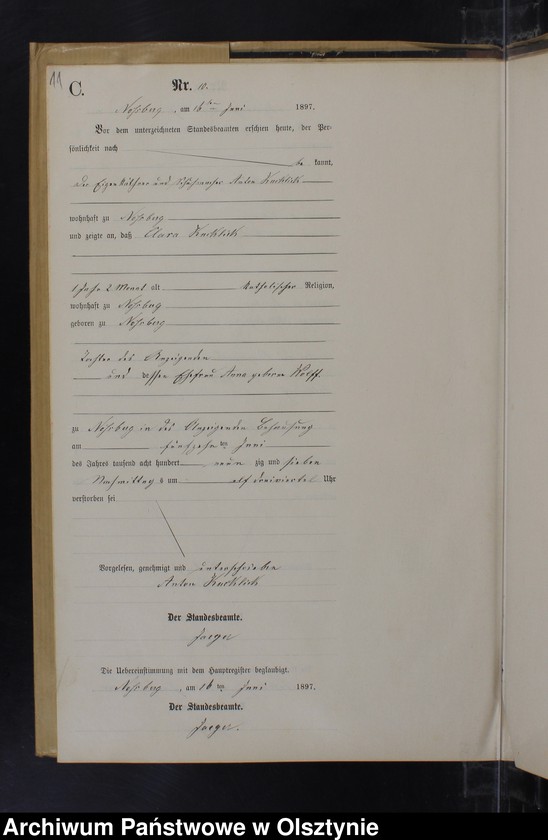 11
C.
Nr. 10.
Noßberg, am 16ten Juni 1897.
Vor dem unterzeichneten Standesbeamten erschien heute, der Per-
sönlichkeit nach
be kannt,
der Eigenkäthner und Schuhmacher Anton
wohnhaft zu Noßberg
und zeigte an, daß Clara
1 Jahr 2 Monat alt katholischer Religion,
wohnhaft zu Noßberg
geboren zu Noßberg
Tochter des Anzeigenden
und dessen Ehefrau Anna geborne Wolff
zu Noßberg in des Anzeigenden Behausung
am fünfzehnten Juni
des Jahres tausend acht hundert neun zig und sieben
Nachmittags um elf dreiviertel Uhr
verstorben sei
Vorgelesen, genehmigt und unterschrieben
Anton
Der Standesbeamte.
Jaeger
Die Uebereinstimmung mit dem Hauptregister beglaubigt.
Noßberg, am 16ten Juni 1897.
Der Standesbeamte.
Jaeger.
Archiwum Państwowe w Olsztynie